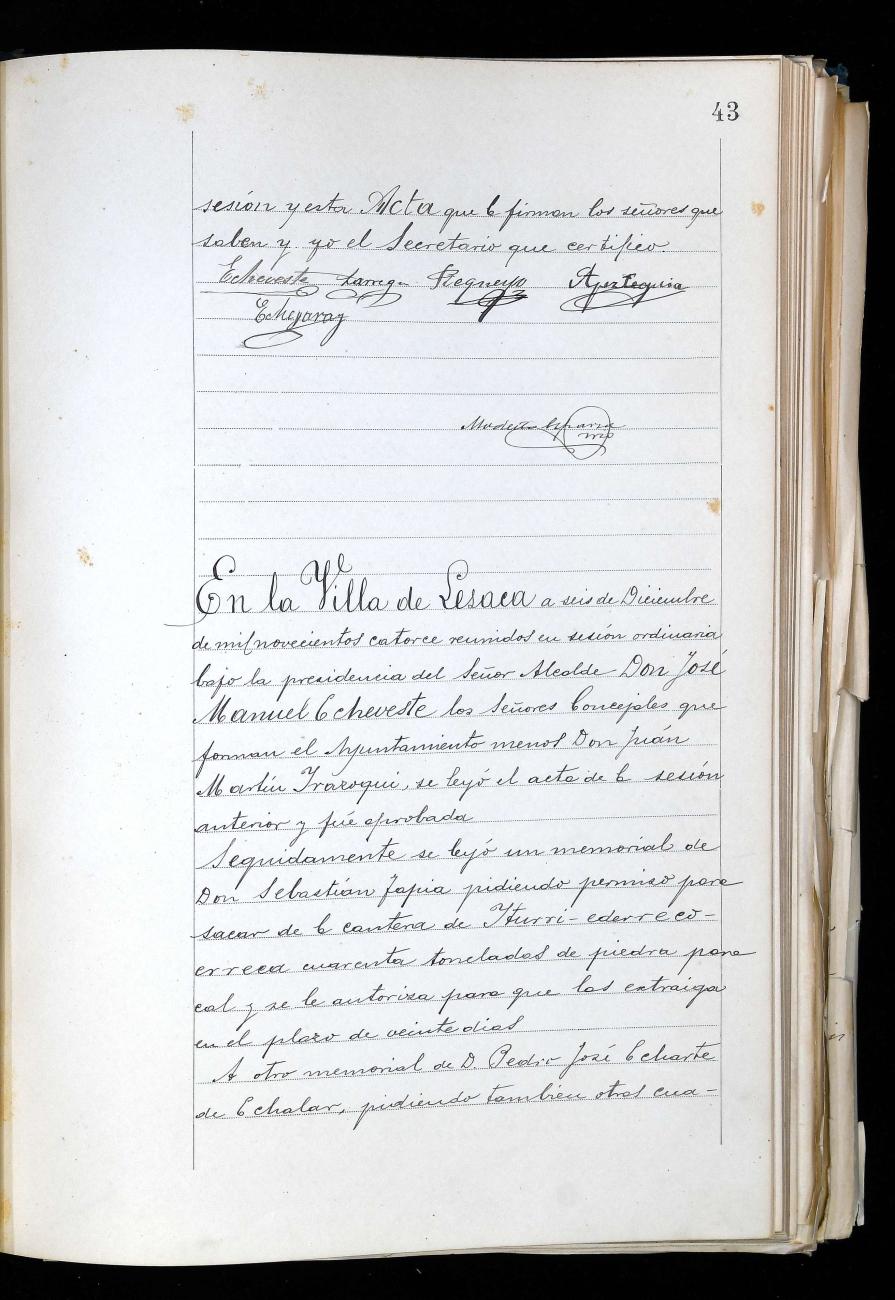 43
sesión y esta Acta que la firman los señores que
saben y yo el Secretario que certifico.
Echeveste Larrega Regueyo Apezteguia
Echegaray
Modesto Esparza
En la Villa de Lesaca a seis de Diciembre
de mil novecientos catorce reunidos en sesión ordinaria
bajo la presidencia del Señor Alcalde Don José
Manuel Echeveste los Señores Concejales que
forman el Ayuntamiento menos Don Juán
Martín Irazoqui, se leyó el acta de la sesión
anterior y fué aprobada
Seguidamente se leyó un memorial de
Don Sebastián Tapia pidiendo permiso para
sacar de la cantera de Iturri-ederreco-
erreca cuarenta toneladas de piedra para
cal y se le autoriza para que las extraiga
en el plazo de veinte dias
A otro memorial de D. Pedro José Echarte
de Echalar, pidiendo también otras cua-